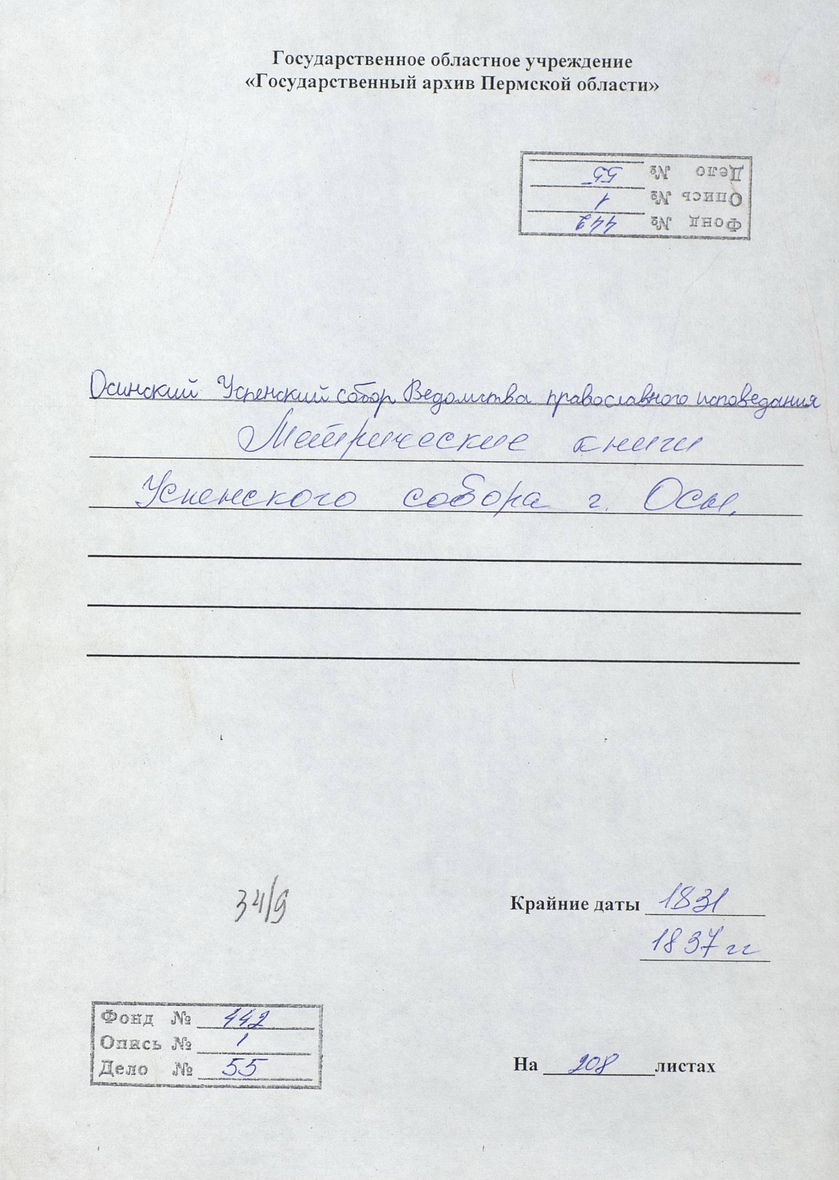 Государственное областное учреждение
«Государственный архив Пермской области»
Дело № 55
Опись № 1
Фонд № 442
Осинский Успенский собор Ведомства православного исповедания
Метрические книги
Успенского собора г. Осы.
34/9
Крайние даты 1831
1837 гг
Фонд № 442
Опись № 1
Дело № 55
На 208 листах